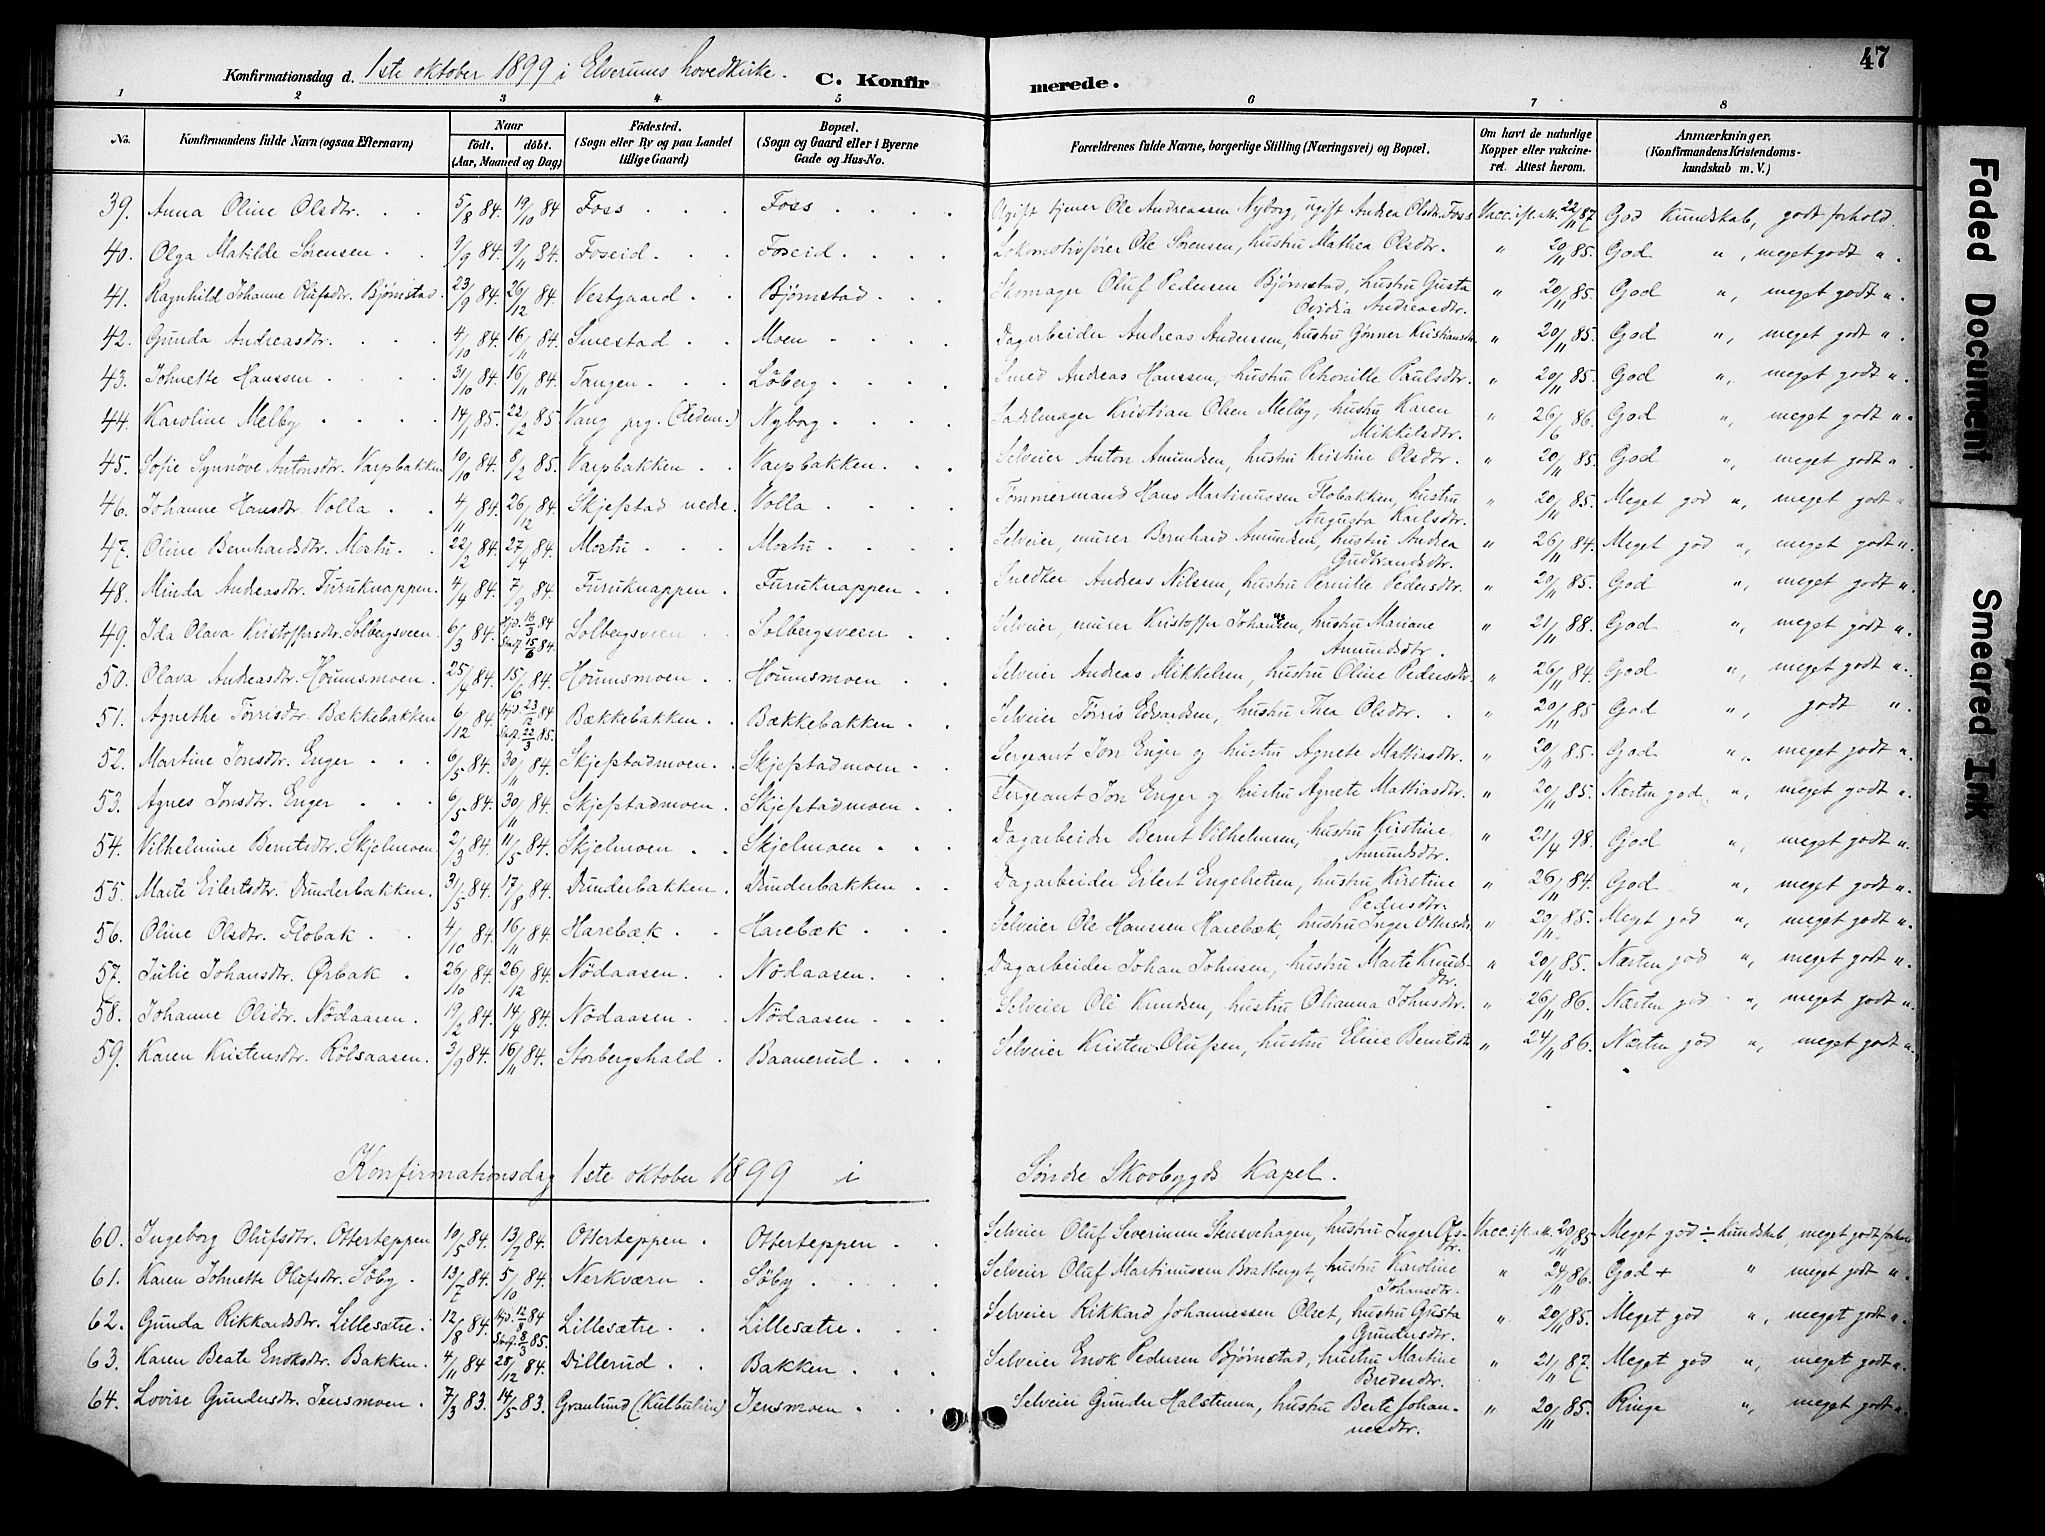 47
Konfirmationsdag d. 1ste oktober 1899 i Elverums hovedkirke. C. Konfirmerede.
1 2 3 4 5 6 7 8
No. Konfirmandens fulde Navn (ogsaa Efternavn) Naar födt. döbt. (Aar, Maaned og Dag) Födested. (Sogn eller By og paa Landet tillige Gaard) Bopæl. (Sogn og Gaard eller i Byerne Gade og Hus-No. Forældrenes fulde Navne, borgerlige Stilling (Næringsvei) og Bopæl. Om havt de naturlige Kopper eller vakcineret. Attest herom. Anmærkninger. (Konfirmandens Kristendomskundskab m. V.)
39. Anna Oline Olsdtr. 5/8 84. 19/10 84 Foss Foss Ugift tjener Ole Andreassen Nyborg, ugift Andrea Olsdtr. Foss Vacc. ifl. att. 22/11 87 God Kundskab, godt forhold.
40. Olga Matilde Sörensen 9/9 84. 9/11 84. Foseid Foseid Lokomotivförer Ole Sörensen, hustru Mathea Olsdtr. " 20/11 85. God ", meget godt ".
41. Ragnhild Johanne Olufsdtr. Björnstad 23/9 84. 26/12 84. Vestgaard Björnstad Skomager Oluf Pedersen Björnstad, hustru Gusta Ovidia Andreasdtr. " 20/11 85. God ", meget godt ".
42. Gunda Andreasdtr. 4/10 84. 16/11 84. Smestad Moen Dagarbeider Andreas Anderssen, hustru Gönner Kristiansdtr. " 20/11 85. God ", meget godt ".
43. Johnette Hanssen 3/10 84. 16/11 84. Tangen Löberg Smed Andreas Hanssen, hustru Pehonille Paulsdtr. " 20/11 85. God ", meget godt ".
44. Karoline Melby 14/1 85. 22/2 85. Vang prg. (Hedem.) Nyborg Sadlmager Kristian Olsen Melby, hustru Karen Mikkelsdtr. " 26/6 86. God ", meget godt ".
45. Sofie Synnöve Antonsdtr. Varpbakken 10/10 84. 8/2 85. Varpbakken Varpbakken Selveier Anton Amundsen, hustru Kristine Olsdtr. " 20/11 85. God ", meget godt ".
46. Johanne Hansdtr. Volla 4/11 84. 26/12 84. Skjefstad nedre. Volla Tömmermand Hans Martinussen Flobakken, hustru Augusta Karlsdtr. " 20/11 85. Meget god ", meget godt "
47. Oline Bernhardsdtr. Mostu 22/2 84. 27/4 84. Mostu Mostu Selveier, murer Bernhard Amundsen, hustru Andrea Gudbrandsdtr. " 26/11 84. Meget god ", meget godt ".
48. Minda Andreasdtr. Furuknappen. 4/4 84. 7/9 84. Furuknappen Furuknappen Snedker Andreas Nilsen, hustru Pernille Pedersdtr. " 20/11 85. God ", meget godt ".
49. Ida Olava Kristoffersdtr. Solbergsveen 6/3 84. Hjd. 16/3 84 Stadf. 15/6 84. Solbergsveen Solbergsveen Selveier, murer Kristoffer Johansen, hustru Mariane Amundsdtr. " 21/11 88. God ", meget godt ".
50. Olava Andreasdtr. Hounsmoen 25/4 84. 15/6 84. Hounsmoen Hounsmoen Selveier Andreas Mikkelsen, hustru Oline Pedersdtr. " 26/11 84. God ", meget godt ".
51. Agnethe Törrisdtr. Bækkebakken 6/12 84. Hjd. 23/12 84 Stadf. 22/3 85. Bækkebakken Bækkebakken Selveier Törris Edvardsen, hustru Thea Olsdtr. " 20/11 85 God ", godt ".
52. Martine Jonsdtr. Enger 6/5 84. 30/11 84. Skjefstadmoen Skjefstadmoen Sergeant Jon Enger og hustru Agnete Mattiasdtr. " 20/11 85. God ", meget godt ".
53. Agnes Jonsdtr. Enger 6/5 84. 30/11 84. Skjefstadmoen Skjefstadmoen Sergeant Jon Enger og hustru Agnete Mattiasdtr. " 20/11 85. Næsten god ", meget godt ".
54. Vilhelmine Berntsdtr. Skjelmoen 2/3 84. 11/5 84. Skjelmoen Skjelmoen Dagarbeider Bernt Vilhelmsen, hustru Kirstine Amundsdtr. " 21/4 98. God ", meget godt ".
55. Marte Eilertsdtr. Dunderbakken 3/5 84. 17/8 84. Dunderbakken Dunderbakken Dagarbeider Eilert Engebretsen, hustru Kirstine Pedersdtr. " 26/11 84. God ", meget godt ".
56. Oline Olsdtr. Flobak 4/10 84. 16/11 84. Harebæk Harebæk Selveier Ole Hanssen Harebæk, hustru Inger Ottersdtr. " 20/11 85. Meget god ", meget godt ".
57. Julie Johansdtr. Ørbak 26/10 84. 26/12 84. Nödaasen Nödaasen Dagarbeider Johan Johnsen, hustru Marte Knudsdtr. " 20/11 85. Næsten god ", meget godt ".
58. Johanne Olsdtr. Nödaasen. 19/2 84. 14/4 84. Nödaasen Nödaasen Selveier Ole Knudsen, hustru Olianna Johnsdtr. " 26/11 86. Næsten god ", meget godt ".
59. Karen Kristensdtr. Rölsaasen 3/9 84. 16/11 84. Storbergshald Baanerud Selveier Kristen Olufsen, hustru Eline Berntsdtr " 24/11 86. Næsten god ", meget godt ".
Konfirmationsdag 1ste oktober 1899 i Söndre Skovbygds Kapel.
60. Ingeborg Olufsdtr. Otterteppen 10/5 84. 13/7 84. Otterteppen Otterteppen Selveier Oluf Severinsen Stensvehagen, hustru Inger Olsdtr. Vacc. ifl. att. 20/11 85 Meget god ÷ kundskab, meget godt forhold
61. Karen Johnette Olufsdtr. Söby 13/7 84. 5/10 84. Nerkværn Söby Selveier Oluf Martinussen Bratberget, hustru Karoline Johansdtr. " 24/11 86. God + " meget godt ".
62. Gunda Rikkardsdtr. Lillesætre 12/8 84. Hjd. 12/8 84 Stadf. 8/3 85. Lillesætre Lillesætre Selveier Rikkard Johannessen Olset, hustru Gusta Gundersdtr. " 20/11 85. Meget god ", meget godt ".
63. Karen Beate Enoksdtr. Bakken 4/11 84 28/12 84. Dillerud Bakken Selveier Enok Pedersen Björnstad, hustru Martine Bredesdtr. " 21/11 87. Meget god ", meget godt ".
64. Lovise Gundersdtr. Jensmoen 7/3 83. 14/5 83. Granlund (Kulbulien) Jensmoen Selveier Gunder Halstensen, hustru Berte Johannesdtr. " 20/11 85. Ringe ", meget godt ".
Faded Document
Smeared Ink